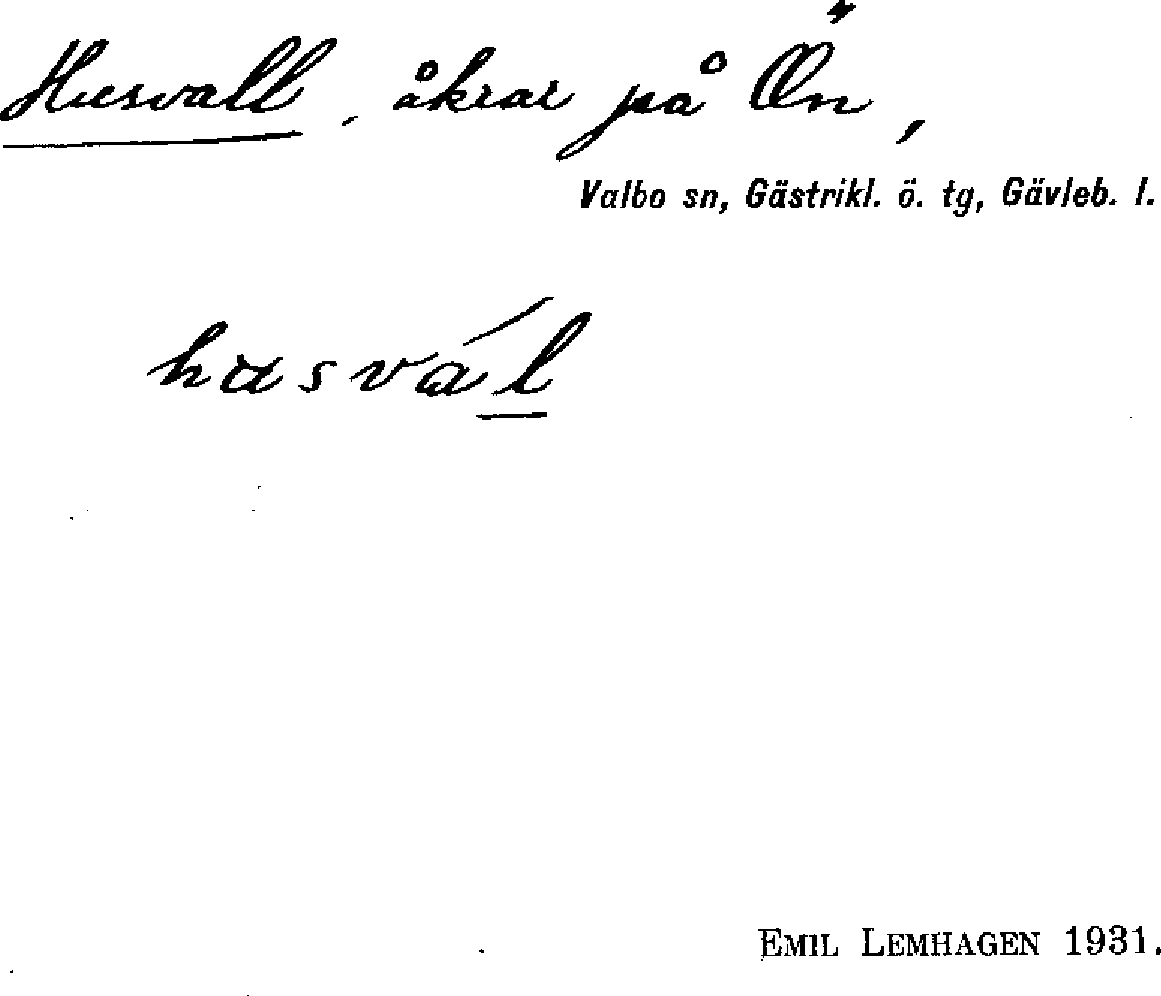 Husvall, åkrar på Ön,
Valbo sn, Gästrikl. ö. tg, Gävleb. l.
hʉsvál
EMIL LEMHAGEN 1931.